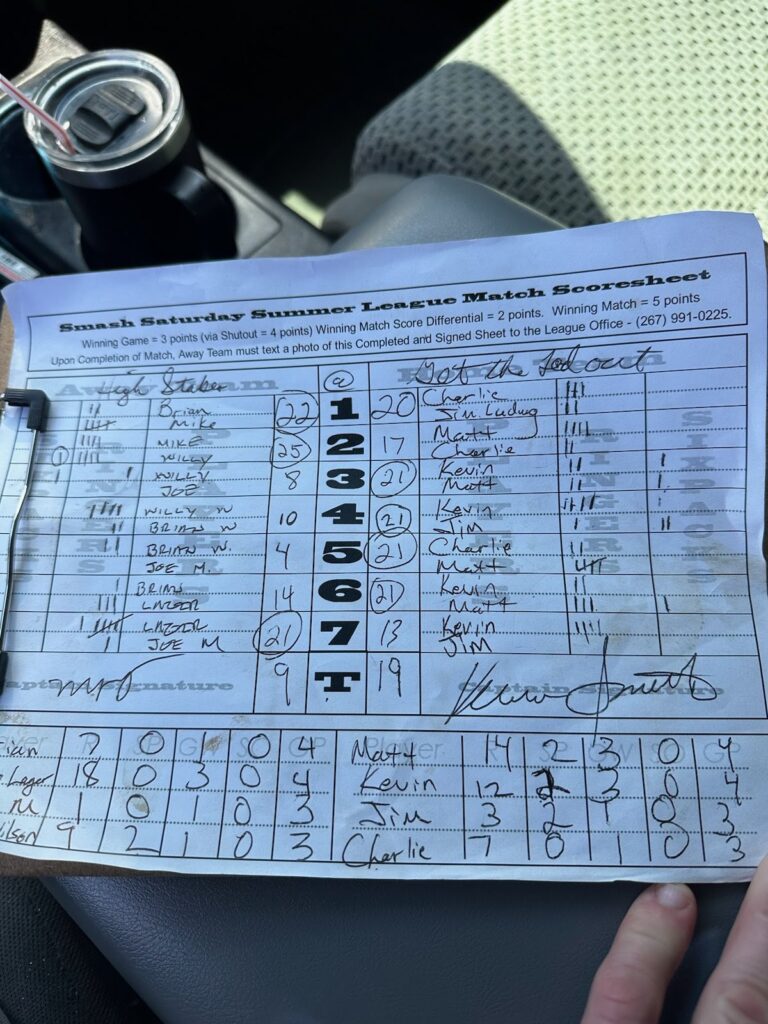 Smash Saturday Summer League Match Scoresheet
Winning Game = 3 points (via Shutout = 4 points) Winning Match Score Differential = 2 points. Winning Match = 5 points
Upon Completion of Match, Away Team must text a photo of this Completed and Signed Sheet to the League Office - (267) 991-0225.
High Staker @ Got the Tod out
Brian 22 1 20 Charlie
Mike Jim Ludwg
MIKE 25 2 17 Matt
WILLY Charlie
WILLY 8 3 21 Kevin
JOE Matt
WILLY W 10 4 21 Kevin
BRIAN W Jim
BRIAN W. 4 5 21 Charlie
JOE M. Matt
BRIAN 14 6 21 Kevin
LAZER Matt
LAZER 21 7 13 Kevin
JOE M JIM
9 T 19
Captain Signature Captain Signature
Player R SP GW SO GP
rian 7 0 1 0 4 Matt 14 2 3 0 4
Lager 18 0 3 0 4 Kevin 12 2 3 0 4
M 1 0 1 0 3 Jim 3 2 1 0 3
ilson 9 2 1 0 3 Charlie 7 0 1 0 3